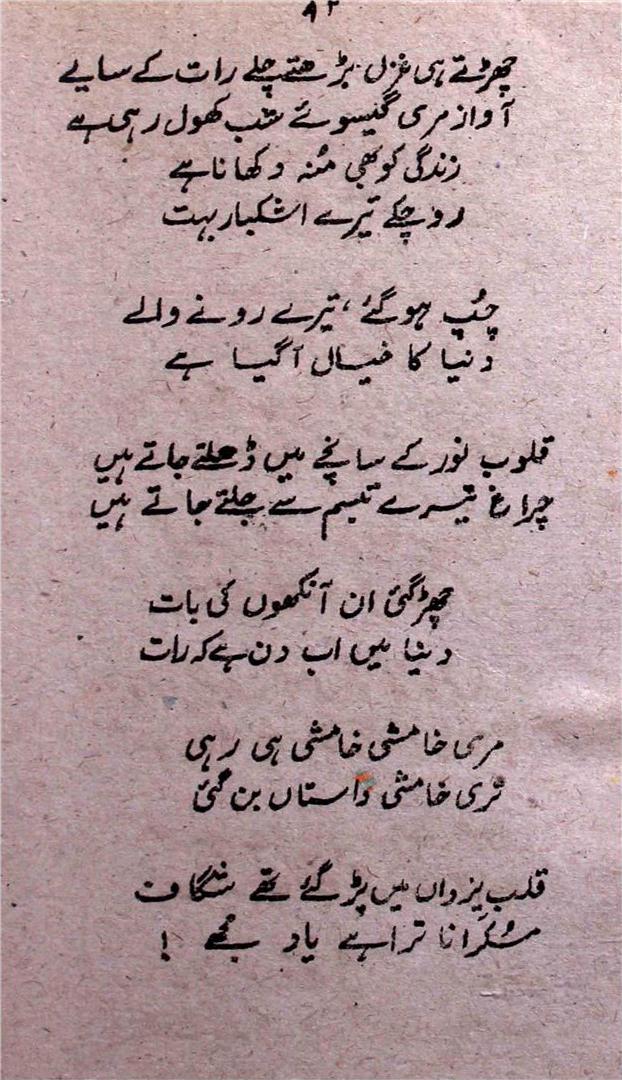 ۸۲
چھڑتے ہی غزل بڑھتے چلے رات کے سایے
آواز مری گیسوئے شب کھول رہی ہے
زندگی کو بھی مُنہ دکھانا ہے
رو چکے تیرے اشکبار بہت
چُپ ہو گئے، تیرے رونے والے
دنیا کا خیال آگیا ہے
قلوب نور کے سانچے میں ڈھلتے جاتے ہیں
چراغ تیرے تبسم سے جلتے جاتے ہیں
چھڑ گئی ان آنکھوں کی بات
دنیا میں اب دن ہے کہ رات
مری خامشی خامشی ہی رہی
تری خامشی داستاں بن گئی
قلب یزداں میں پڑ گئے تھے شگاف
مُسکرانا ترا ہے یاد مجھے !